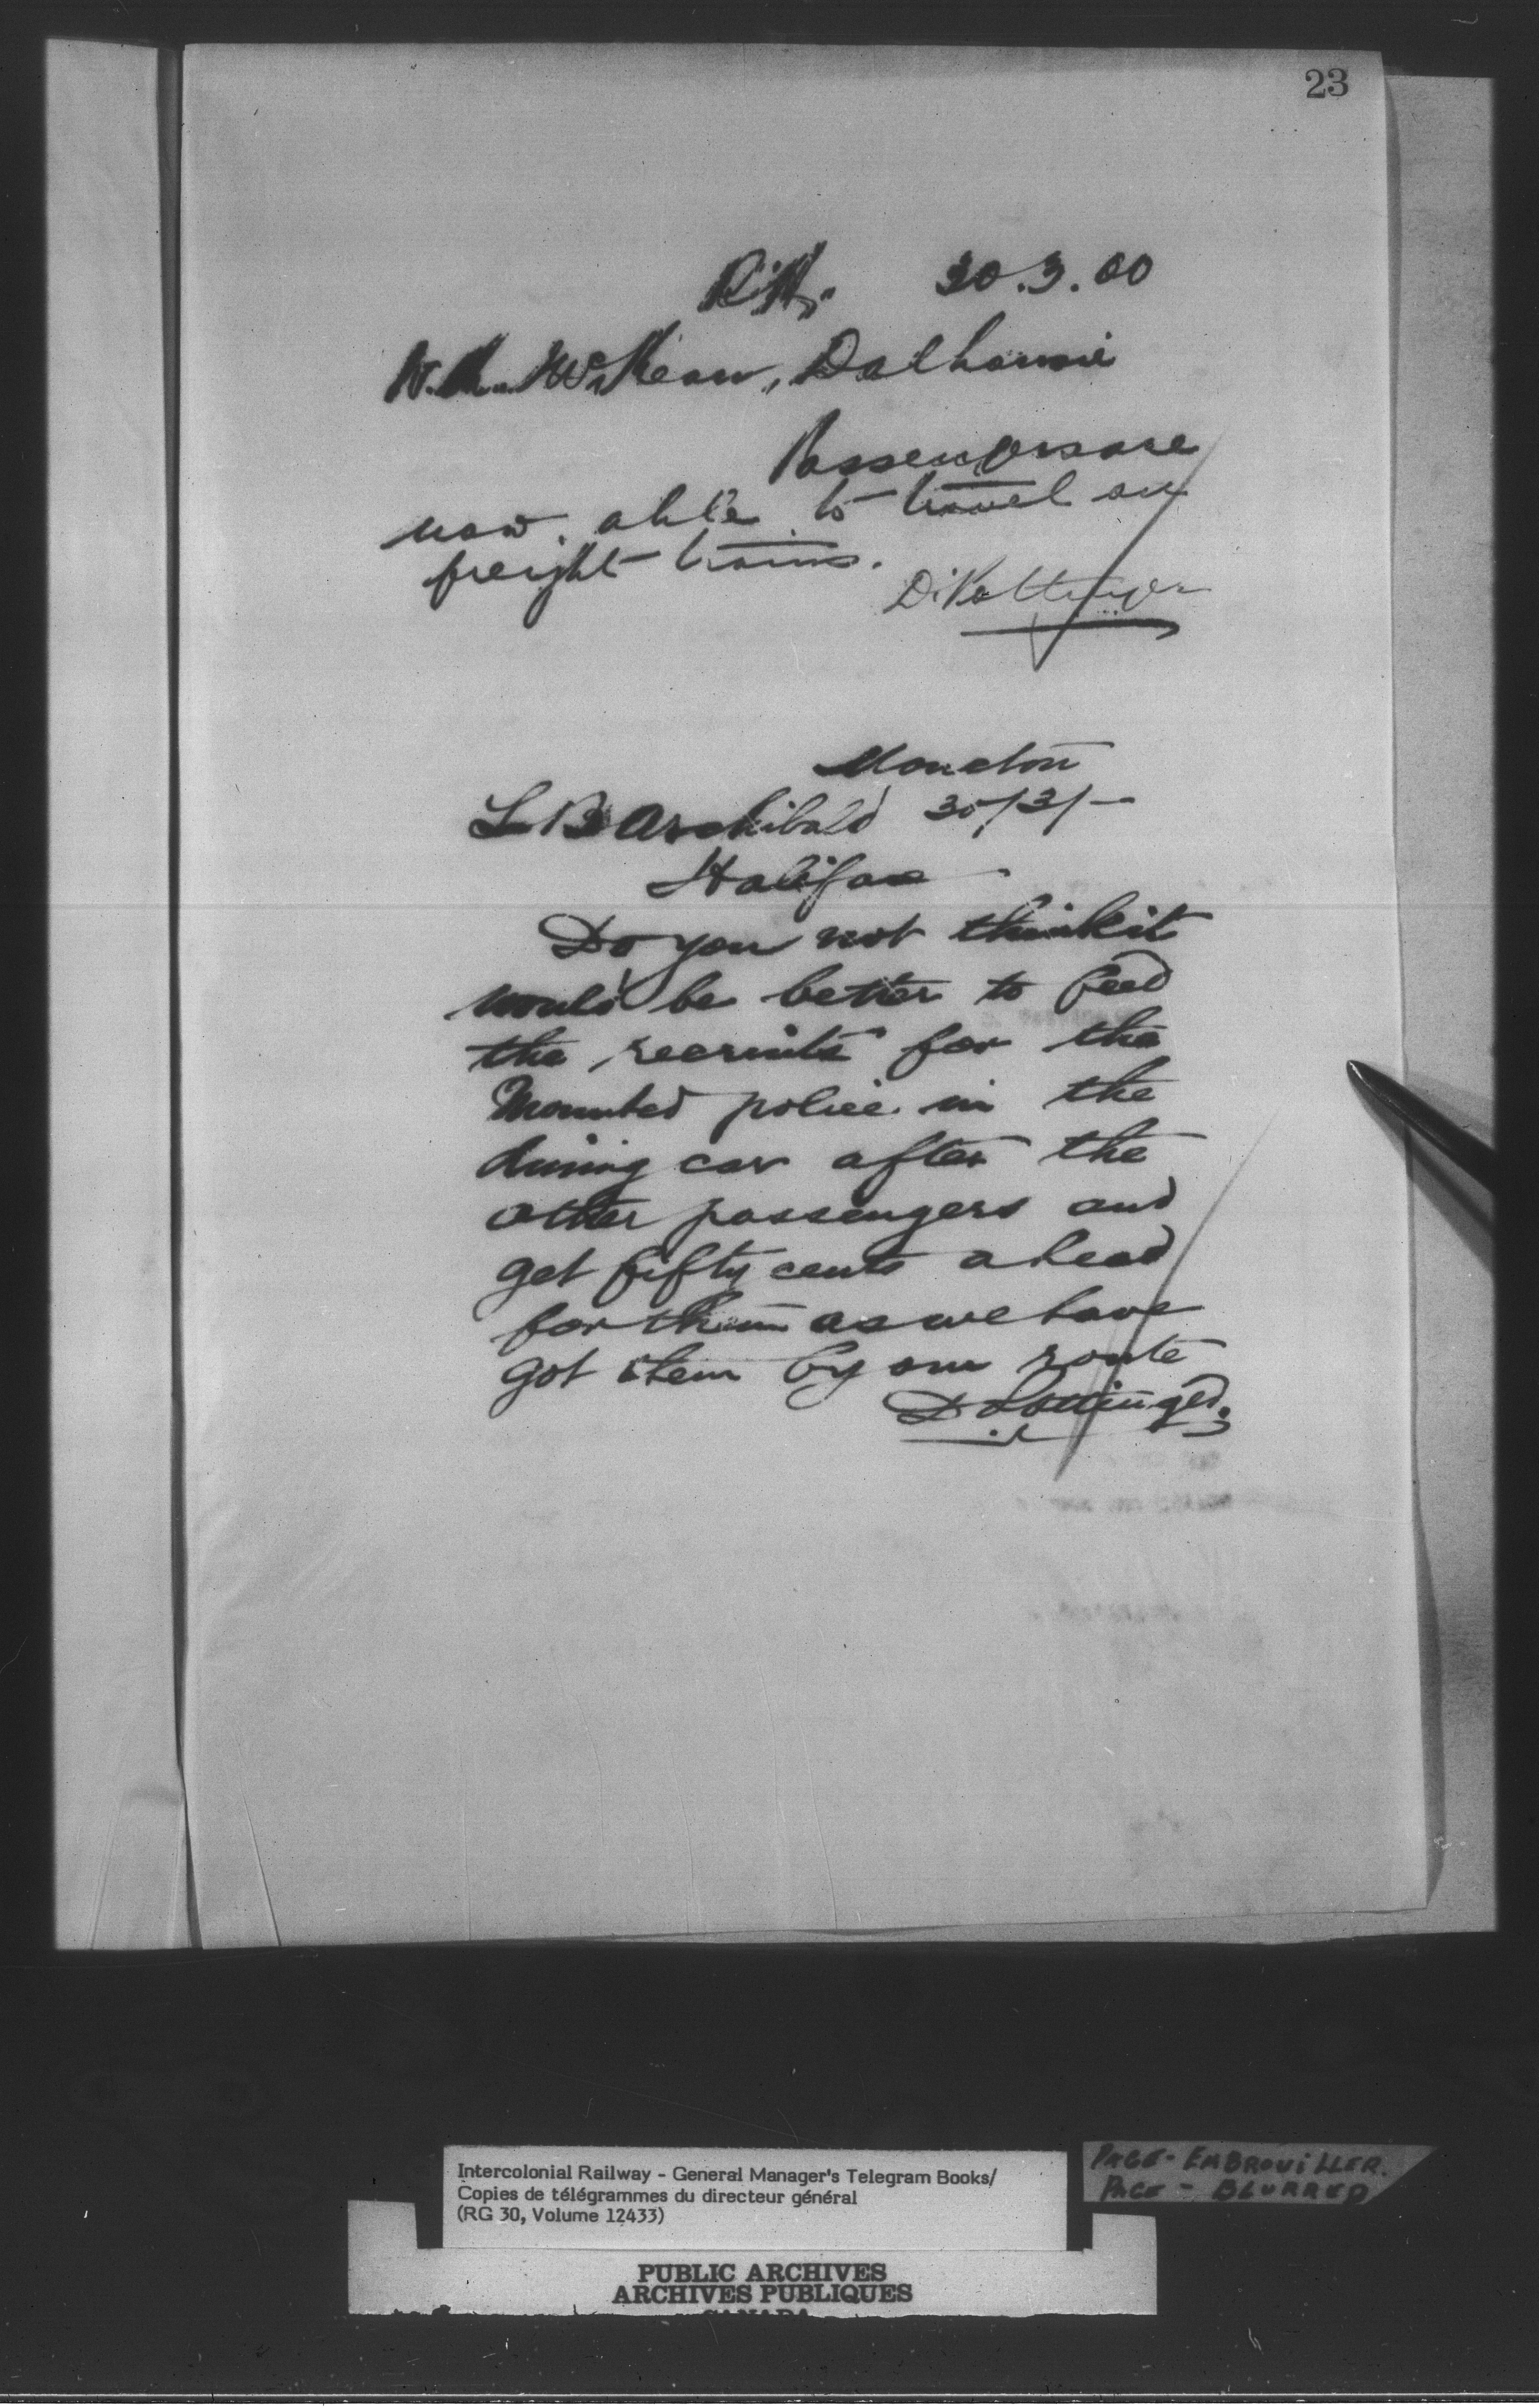 23
30.3.00
W. McKean, Dalhousie
Passengers are
now able to travel on
freight trains.
D. Pottinger
Moncton
L B Archibald 30/3/-
Halifax
Do you not think it
would be better to feed
the recruits for the
Mounted police in the
dining car after the
other passengers and
get fifty cents a head
for them as we have
got them by our route
D Pottinger.
Intercolonial Railway - General Manager's Telegram Books/
Copies de télégrammes du directeur général
(RG 30, Volume 12433)
PAGE - EMBROUILLER.
PAGE - BLURRED
PUBLIC ARCHIVES
ARCHIVES PUBLIQUES
CANADA